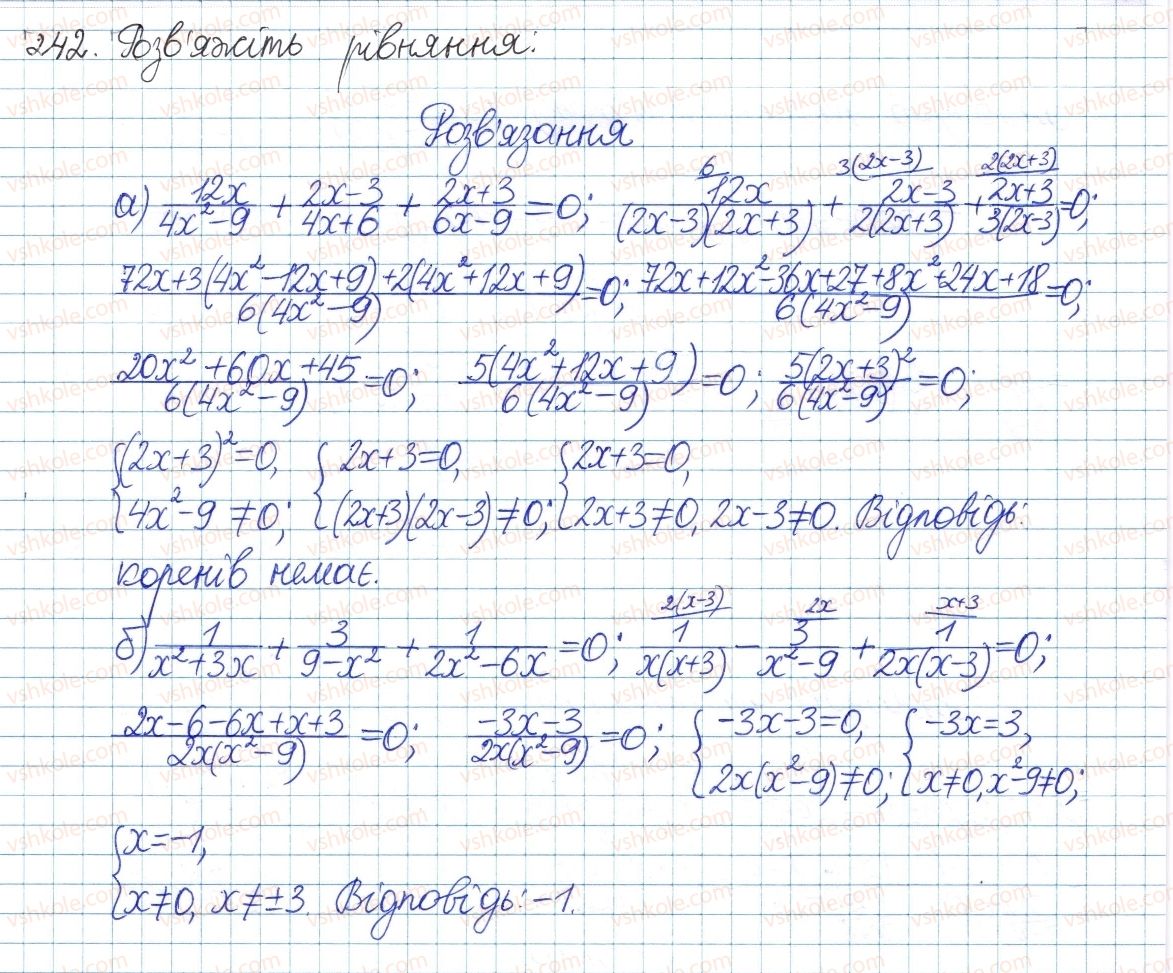 242. Розв'яжіть рівняння:
Розв'язання
а) 12x/(4x²-9) + (2x-3)/(4x+6) + (2x+3)/(6x-9) = 0; 6/ 12x/((2x-3)(2x+3)) + 3(2x-3)/ (2x-3)/(2(2x+3)) + 2(2x+3)/ (2x+3)/(3(2x-3)) = 0;
(72x+3(4x²-12x+9)+2(4x²+12x+9))/(6(4x²-9)) = 0; (72x+12x²-36x+27+8x²+24x+18)/(6(4x²-9)) = 0;
(20x²+60x+45)/(6(4x²-9)) = 0; 5(4x²+12x+9)/(6(4x²-9)) = 0; 5(2x+3)²/(6(4x²-9)) = 0;
{(2x+3)²=0, {2x+3=0, {2x+3=0,
4x²-9≠0; (2x+3)(2x-3)≠0; 2x+3≠0, 2x-3≠0. Відповідь:
коренів немає.
б) 1/(x²+3x) + 3/(9-x²) + 1/(2x²-6x) = 0; 2(x-3)/ 1/(x(x+3)) - 2x/ 3/(x²-9) + x+3/ 1/(2x(x-3)) = 0;
(2x-6-6x+x+3)/(2x(x²-9)) = 0; (-3x-3)/(2x(x²-9)) = 0; {-3x-3=0, {-3x=3,
2x(x²-9)≠0; x≠0, x²-9≠0;
{x=-1,
x≠0, x≠±3. Відповідь: -1.